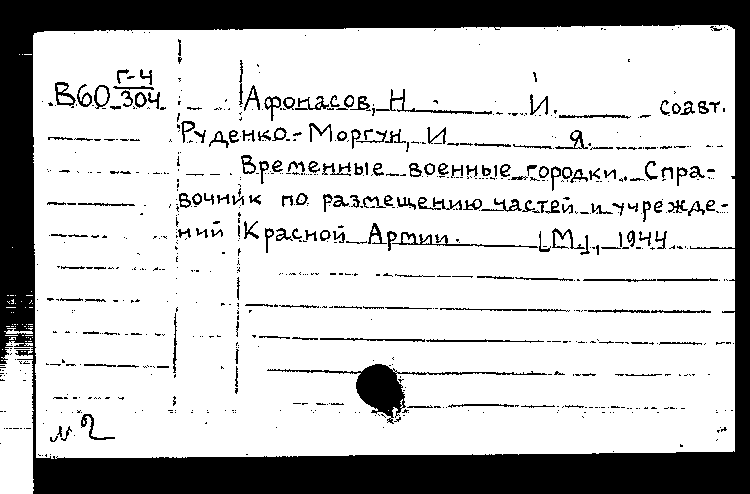 Г-4
В60 304
Афонасов, Н. И. соавт.
Руденко-Моргун, И Я.
Временные военные городки. Спра-
вочник по размещению частей и учрежде-
ний Красной Армии. [М.], 1944
м 2